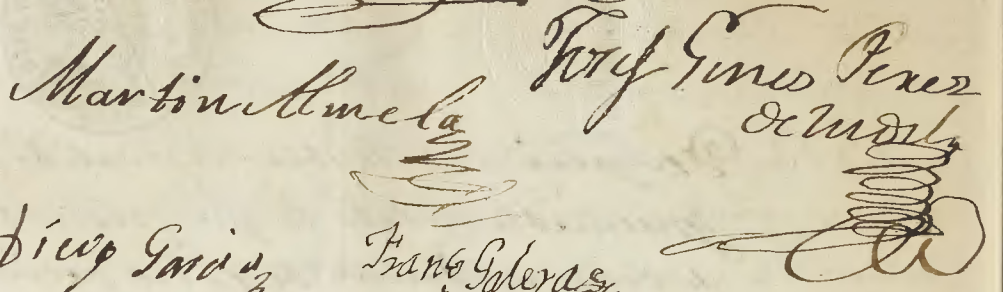 Martin Almela
Josef Gines Perez
de
Diego Garcia
Franco Galeras